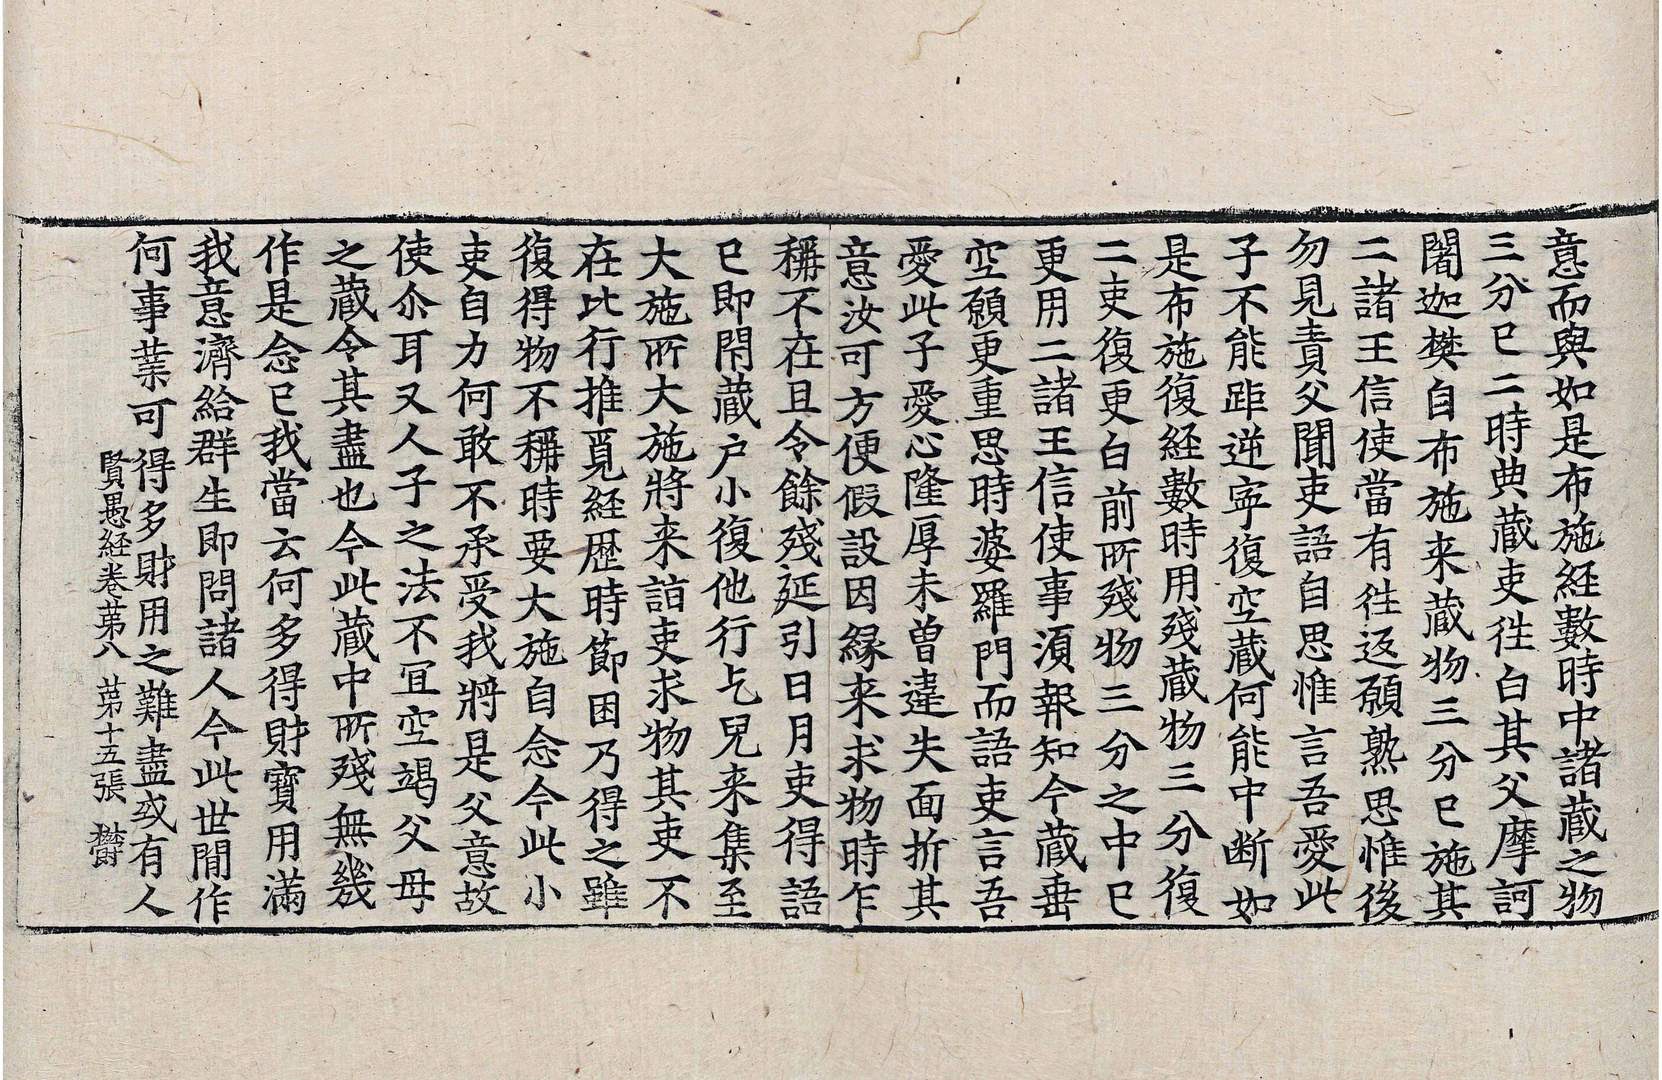 意而與如是布施経數時中諸蔵之物
三分巳二時典蔵吏徃白其父摩訶
闍迦樊自布施来蔵物三分巳施其
二諸王信使當有徃返願熟思惟後
勿見責父聞吏語自思惟言吾愛此
子不能距逆寧復空蔵何能中断如
是布施復経數時用殘蔵物三分復
二吏復更白前所殘物三分之中巳
更用二諸王信使事湏報知今蔵垂
空願更重思時婆羅門而語吏言吾
愛此子愛心隆厚未曾違失面折其
意汝可方便假設因縁来求物時乍
稱不在且令餘殘延引日月吏得語
巳即閇蔵户小復他行乞兒来集至
大施所大施將来詣吏求物其吏不
在比行推覓経歴時節困乃得之雖
復得物不稱時要大施自念今此小
吏自力何敢不承受我將是父意故
使尒耳又人子之法不冝空竭父母
之蔵令其盡也今此蔵中所殘無幾
作是念巳我當云何多得財寶用滿
我意濟給群生即問諸人今此世間作
何事業可得多財用之難盡或有人
賢愚経卷苐八　苐十五張　欝